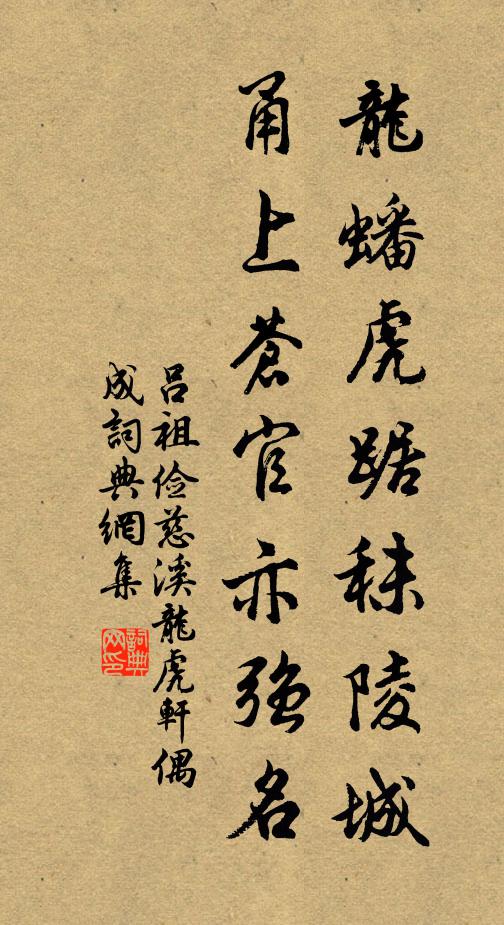 龍蟠虎踞秣陵城
甬上蒼官亦強名
呂祖儉慈溪龍虎軒偶
成詞典網集
詞典
網印